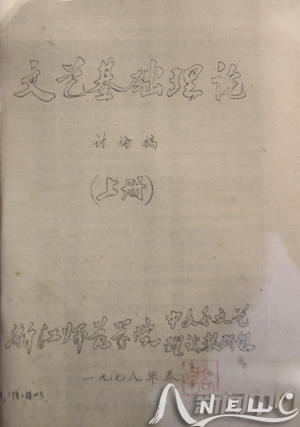 文艺基础理论
讨论稿
(上册)
浙江师范学院 中文系文艺
理论教研组
一九七八年春
NEWC